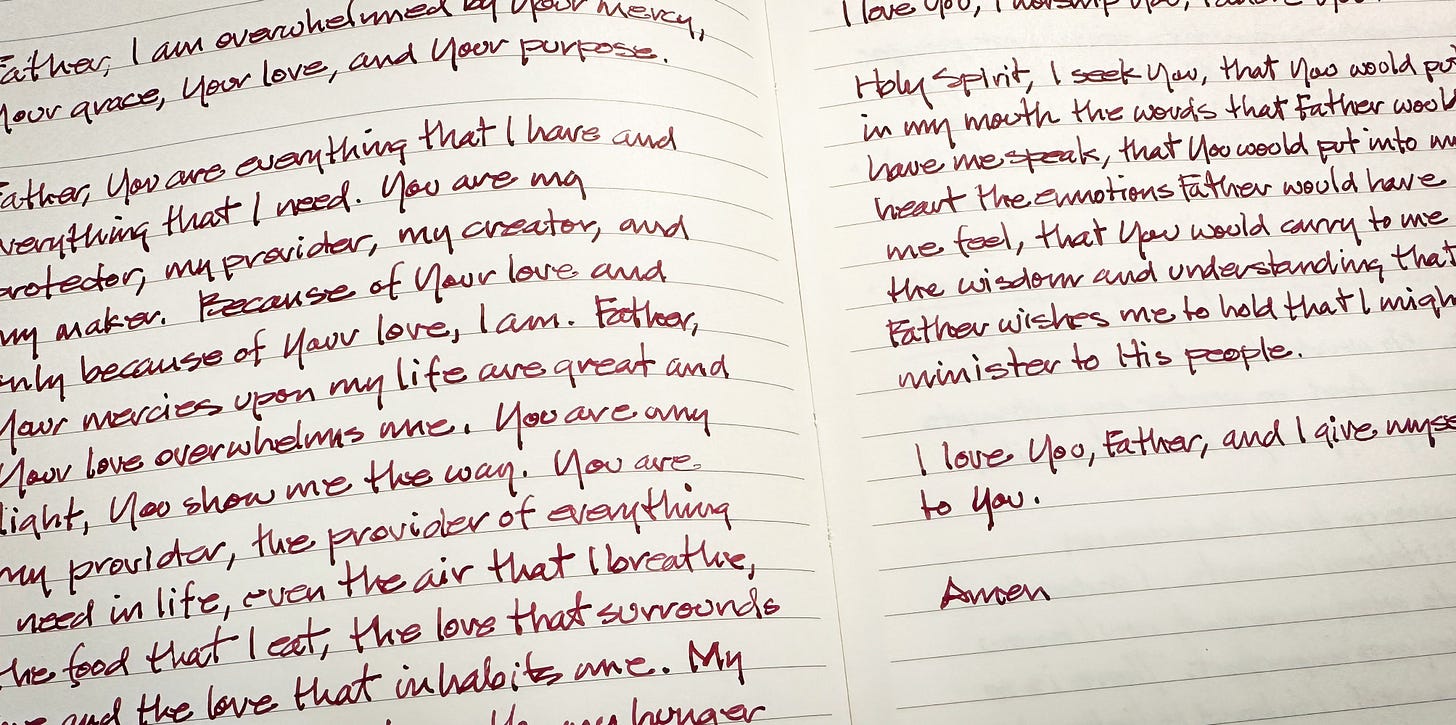 Father, I am overwhelmed by Your mercy,
Your grace, Your love, and Your purpose.
Father, You are everything that I have and
everything that I need. You are my
protector, my provider, my creator, and
my maker. Because of Your love and
only because of Your love, I am. Father,
Your mercies upon my life are great and
Your love overwhelms me. You are my
light, You show me the way. You are
my provider, the provider of everything
need in life, even the air that I breathe,
the food that I eat, the love that surrounds
and the love that inhabits me. My
my hunger
I love You, I worship You, I adore You
Holy Spirit, I seek You, that You would put
in my mouth the words that Father would
have me speak, that You would put into my
heart the emotions Father would have
me feel, that You would carry to me
the wisdom and understanding that
Father wishes me to hold that I might
minister to His people.
I love You, Father, and I give myse
to You.
Amen